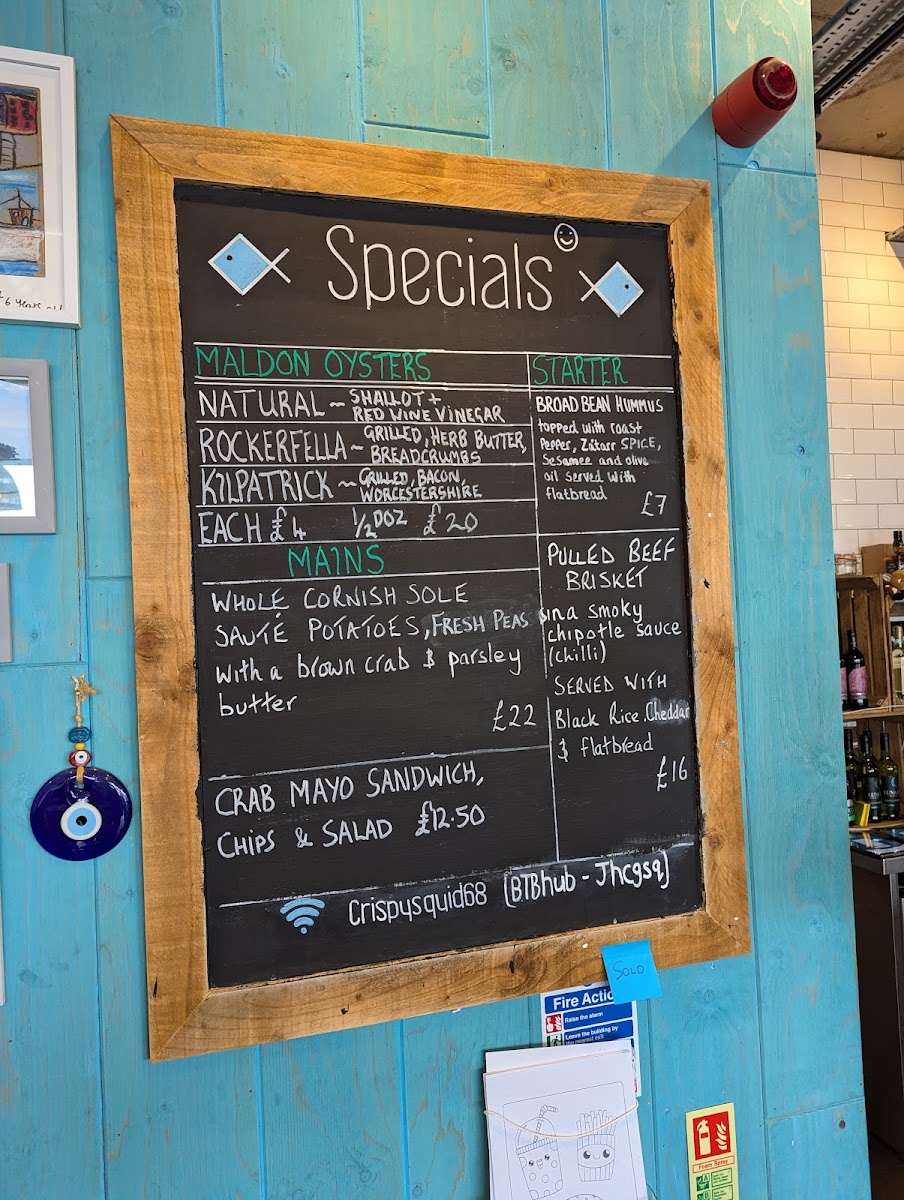 Specials
MALDON OYSTERS
NATURAL ~ SHALLOT +
RED WINE VINEGAR
ROCKERFELLA ~ GRILLED, HERB BUTTER,
BREADCRUMBS
KILPATRICK ~ GRILLED, BACON,
WORCESTERSHIRE
EACH £4 1/2 DOZ £20
MAINS
WHOLE CORNISH SOLE
SAUTÉ POTATOES, FRESH PEAS
with a brown crab & parsley
butter
£22
CRAB MAYO SANDWICH,
CHIPS & SALAD £12.50
STARTER
BROAD BEAN HUMMUS
topped with roast
Pepper, Zatarr SPICE,
Sesamee and olive
oil served with
flatbread
£7
PULLED BEEF
BRISKET
in a smoky
chipotle sauce
(chilli)
SERVED WITH
Black Rice, Cheddar
& flatbread
£16
Crispysquid68 (BTBhub - Jhcgsq)
SOLD
Fire Actio
Raise the alarm
Leave the building by
the nearest exit
Foam Spray
6 years old